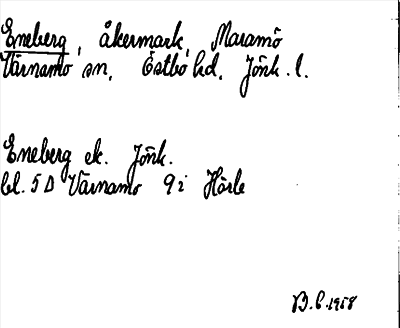 Eneberg, åkermark, Maramö
Värnamo sn, Östbo hd, Jönk. l.
Eneberg ek. Jönk.
bl. 5D Värnamo 9i Hörle
B.C. 1958